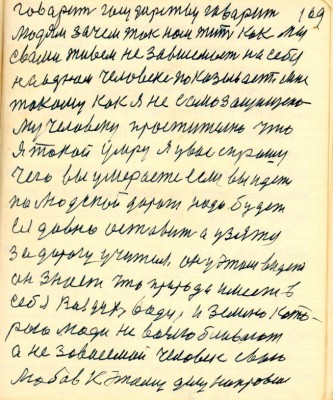 говарит государству говарит 109
людям зачем так нам жить как мы
с вами живем не зависемост на себя
на адном человеке показывает мне
такому как я не самозащищено
му человеку простительно что
я такой умру я у вас спрошу
чего вы умераете если вы идете
по людской дороги надо будет
её давно оставить а узяться
за дорогу учителя. он у этом видет
он знает что природа имеет в
себя воздух, воду, и землю кото-
рою люди не
а не зависемой человек свою
любов к этаму делу направил